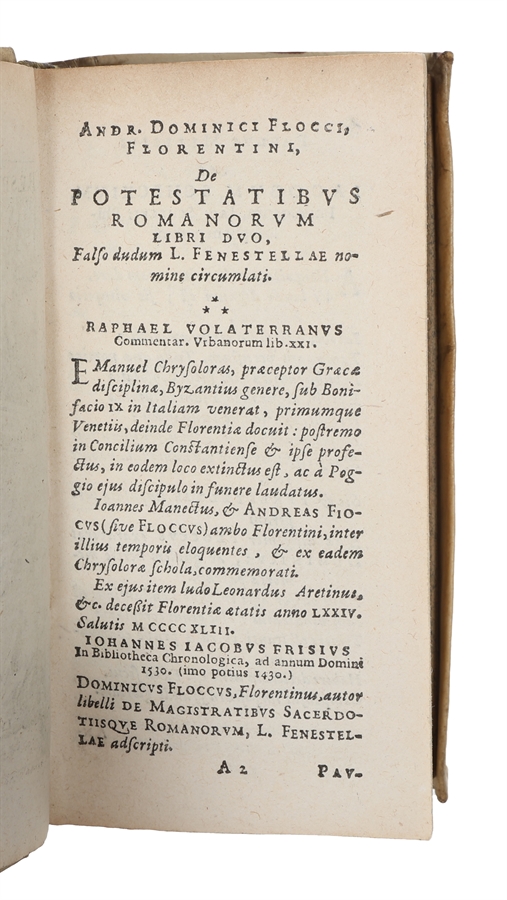 ANDR. DOMINICI FLOCCI,
FLORENTINI,
De
POTESTATIBVS
ROMANORVM
LIBRI DVO,
Falſo dudum L. FENESTELLAE no-
mine circumlati.
* * *
RAPHAEL VOLATERRANVS
Commentar. Vrbanorum lib. XXI.
EManuel Chryſoloras, præceptor Græcæ
diſciplinæ, Byzantius genere, ſub Boni-
facio IX in Italiam venerat, primumque
Venetiis, deinde Florentiæ docuit: poſtremo
in Concilium Conſtantienſe & ipſe profe-
ctus, in eodem loco extinctus eſt, ac à Pog-
gio ejus diſcipulo in funere laudatus.
Ioannes Manectus, & ANDREAS FIO-
CVS (ſive FLOCCVS) ambo Florentini, inter
illius temporis eloquentes, & ex eadem
Chryſoloræ ſchola, commemorati.
Ex ejus item ludo Leonardus Aretinus,
&c. deceßit Florentiæ ætatis anno LXXIV.
Salutis M CCCC XLIII.
IOHANNES IACOBVS FRISIVS
In Bibliotheca Chronologica, ad annum Domini
1530. (imo potius 1430.)
DOMINICVS FLOCCVS, Florentinus, autor
libelli DE MAGISTRATIBVS SACERDO-
TIISQVE ROMANORVM, L. FENESTEL-
LAE adſcripti.
A 2 PAV-